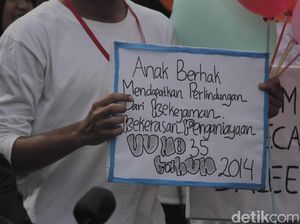 Anak Berhak
Mendapatkan Perlindungan
Dari Kekejaman
Kekerasan Penganiayaan
UU NO 35
tahun 2014
M
ECA
EE
detikcom